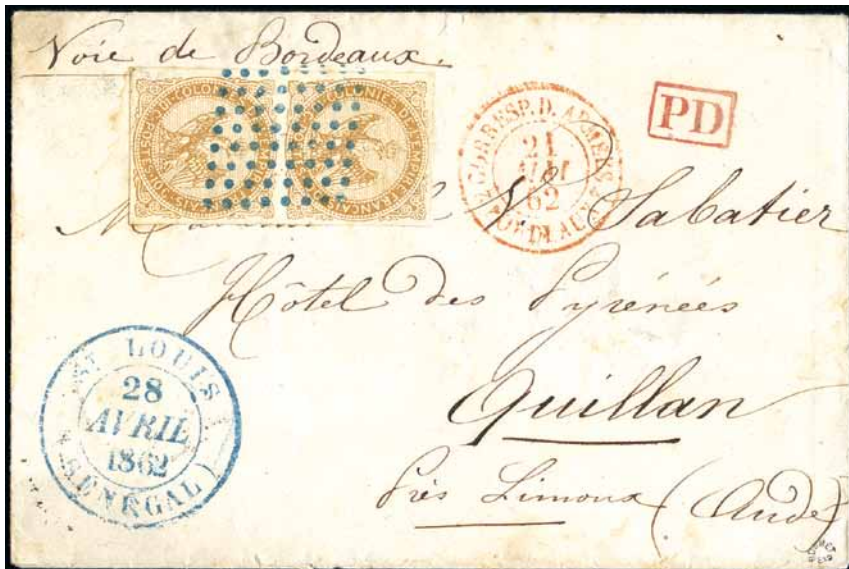 Voie de Bordeaux.
COLONIES DE L'EMPIRE FRANÇAIS
POSTES
CORRESP. D. ARMÉES
21
MAI
62
BORDEAUX
PD
V. Sabatier
Hôtel des Pyrénées
Quillan
Près Limoux (Aude)
ST LOUIS
28
AVRIL
1862
SÉNÉGAL